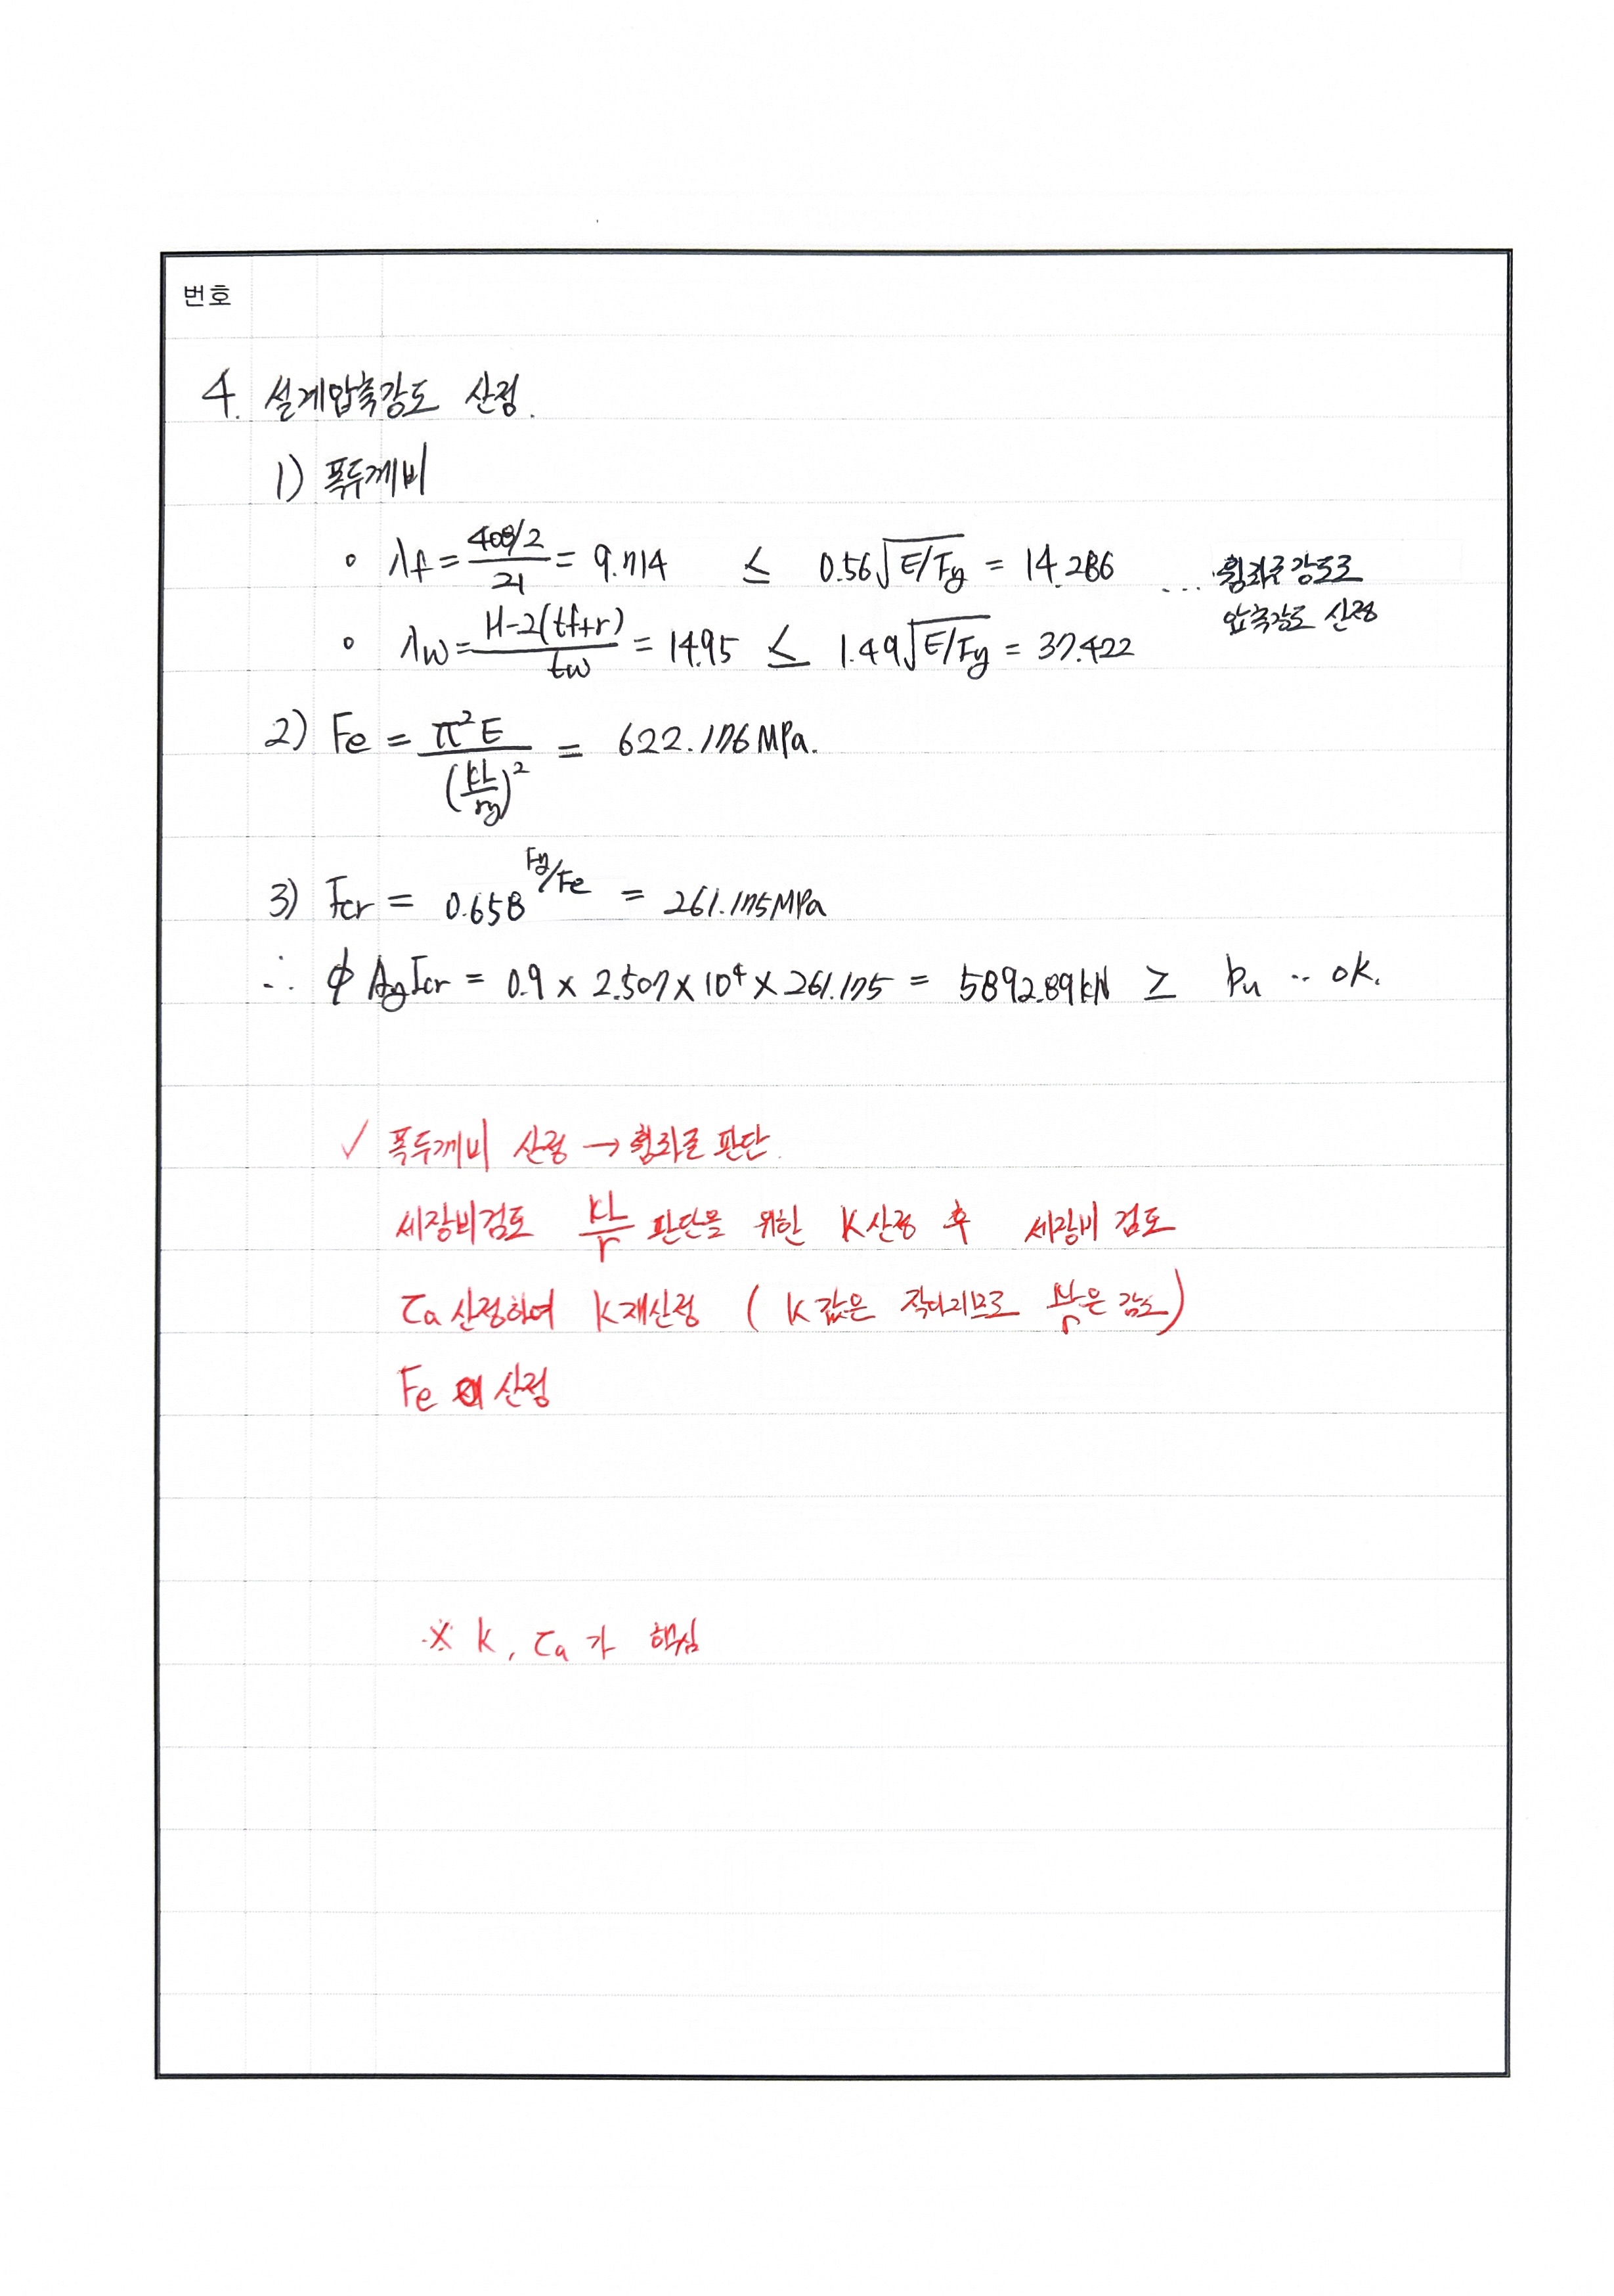 번호
4. 설계압축강도 산정.
1) 폭두께비
∘ λf = 408/2 / 21 = 9.714 ≤ 0.56√E/Fy = 14.286 ... 휨좌굴강도로
압축강도 산정
∘ λw = H-2(tf+r) / tw = 14.95 ≤ 1.49√E/Fy = 37.422
2) Fe = π²E / (KL/ry)² = 622.176 MPa.
3) Fcr = 0.658^Fy/Fe = 261.175 MPa
∴ ϕ AgFcr = 0.9 × 2.507 × 10⁴ × 261.175 = 5892.89 kN ≥ Pu ‥ ok.
✓ 폭두께비 산정 → 휨좌굴 판단.
세장비검토 KL/r 판단을 위한 K산정 후 세장비 검토
τa 산정하여 K재산정 ( K값은 작아지므로 KL/r은 감소)
Fe 산정
※ K, τa 가 핵심